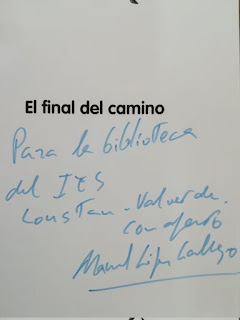 El final del camino
Para la biblioteca
del IES
Constan. Valverde.
con afecto
Manuel López Gallego